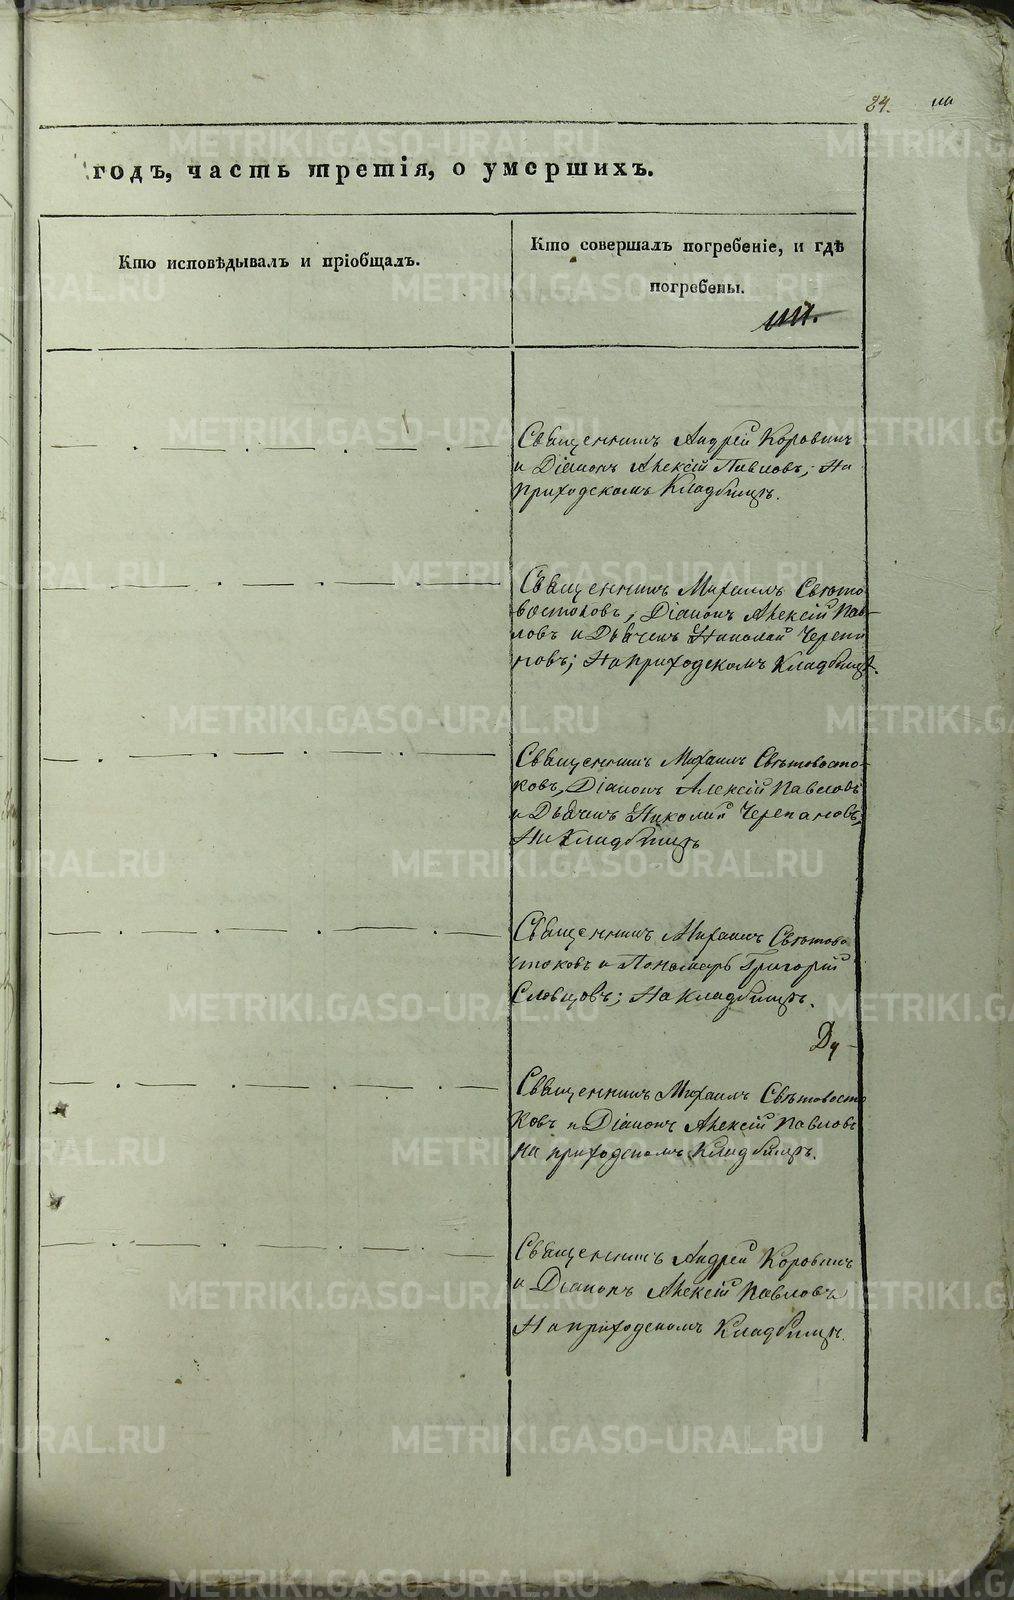 84.
годъ, часть третія, о умершихъ.
Кто исповѣдывалъ и пріобщалъ.
Кто совершалъ погребеніе, и гдѣ
погребены.
Священникъ Андрей Коровинъ
и Діаконъ Алексій Павловъ; На
приходскомъ Кладбищѣ.
Священникъ Михаилъ Свѣтло
востоковъ, Діаконъ Алексій Пав-
ловъ и Дьячекъ Николай Черепа
новъ; На приходскомъ Кладбищѣ.
Священникъ Михаилъ Свѣтовосто-
ковъ, Діаконъ Алексій Павловъ
и Дьячекъ Николай Черепановъ,
На Кладбищѣ
Священникъ Михаилъ Свѣтово
стоковъ и Пономарь Григорій
Словцовъ; На Кладбищѣ.
Священникъ Михаилъ Свѣтовосто
ковъ и Діаконъ Алексій Павловъ
на приходскомъ Кладбищѣ.
Священникъ Андрей Коровинъ
и Діаконъ Алексій Павловъ
На приходскомъ Кладбищѣ.
METRIKI.GASO-URAL.RU